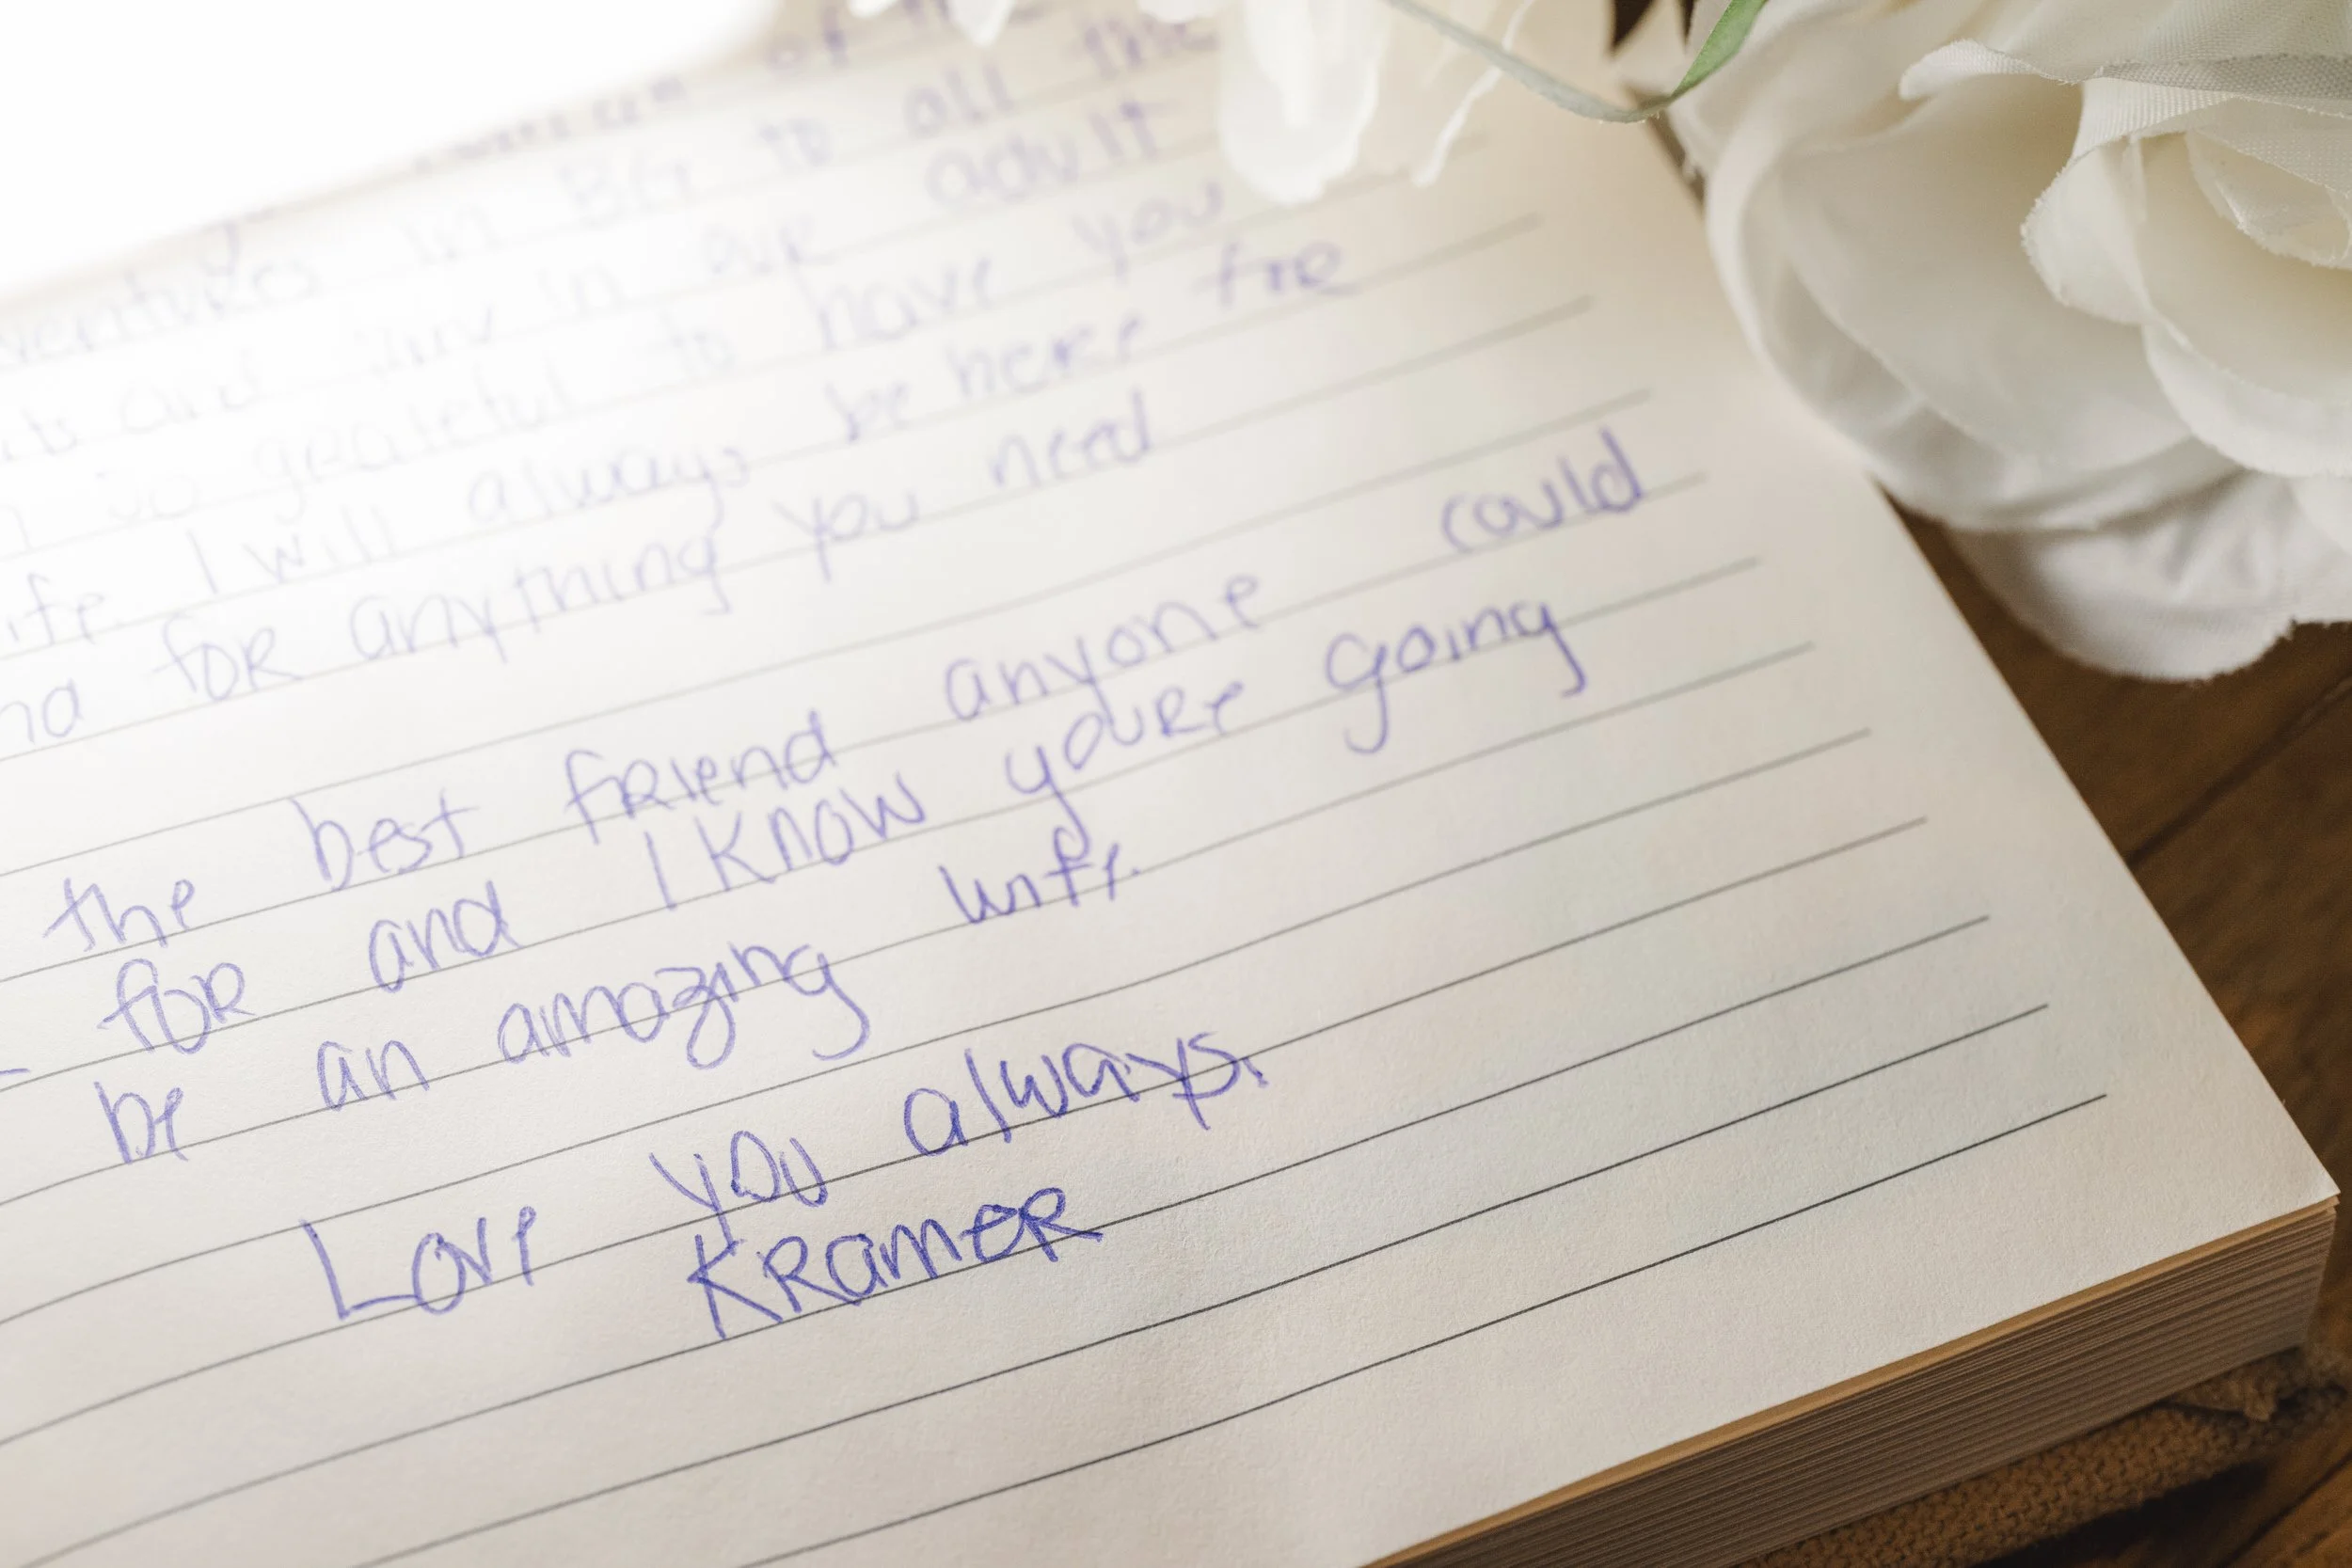 of
in BG to all the
and in our adult
so grateful to have you
life. I will always be here for
for anything you need
the best friend anyone could
for and I know youre going
be an amazing wife.
Love you always.
Kramer